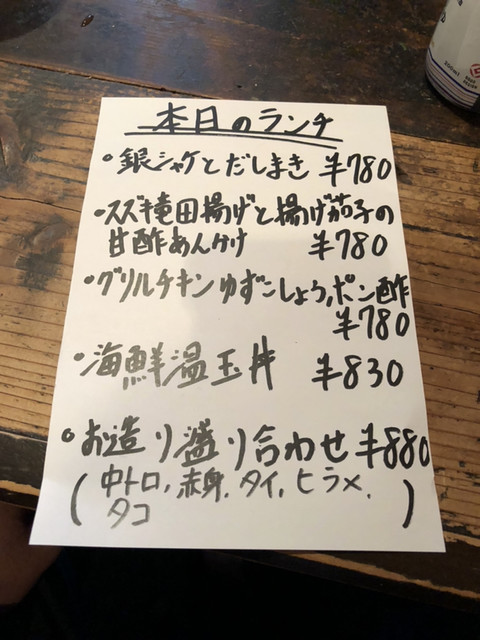 本日のランチ
・銀シャケとだしまき ¥780
・スズキ竜田揚げと揚げ茄子の
甘酢あんかけ ¥780
・グリルチキンゆずこしょう,ポン酢
¥780
・海鮮温玉丼 ¥830
・お造り盛り合わせ ¥880
(中トロ,赤身.タイ,ヒラメ,
タコ)